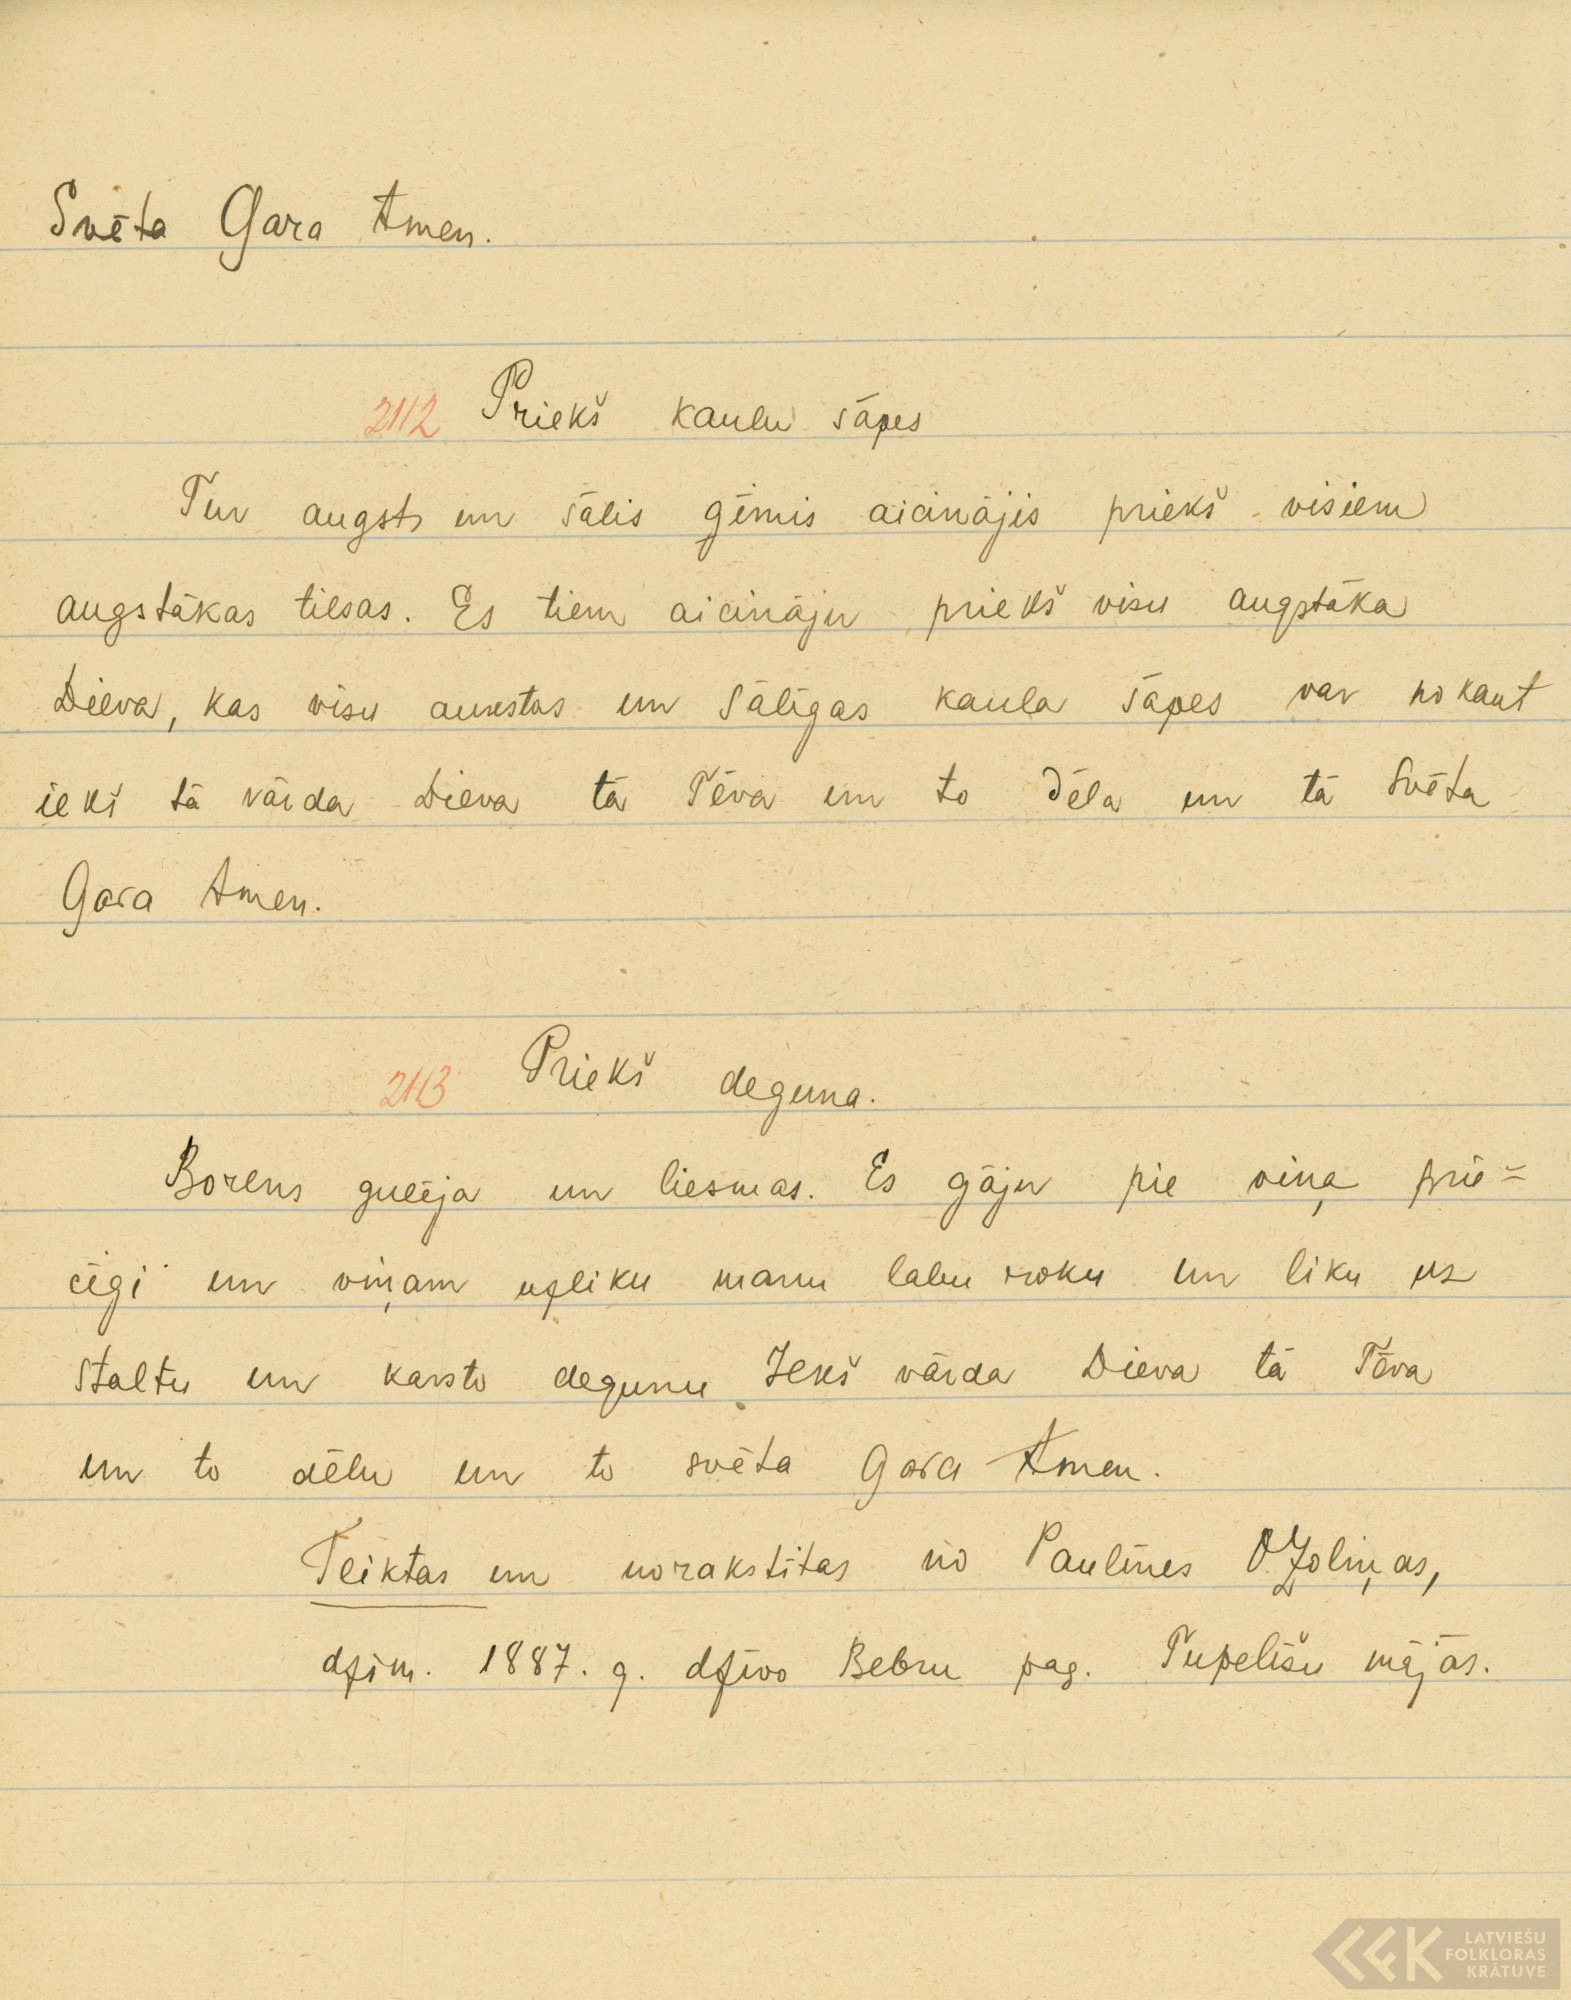 Svēta Gara Amen.
2112 Priekš kaulu sāpes
Tur augsts un sālis ģēmis aicinājis priekš visiem
augstākas tiesas. Es tiem aicināju priekš visu augstāka
Dieva, kas visu aukstas un sāligas kaula sāpes var nokaut
iekš tā vārda Dieva tā Tēva un to Dēla un tā Svēta
Gara Amen.
2113 Priekš deguna.
Borens gulēja un liesmas. Es gāju pie viņa prie=
cīgi un viņam uzliku manu labu roku un liku uz
staltu un karsto degunu Iekš vārda Dieva tā Tēva
un to dēlu un to svēta Gara Amen.
Teiktas un norakstītas no Paulīnes Ozoliņas,
dzim. 1887. g. dzīvo Bebru pag. Tupelīšu mājās.
LATVIEŠU
FOLKLORAS
KRĀTUVE